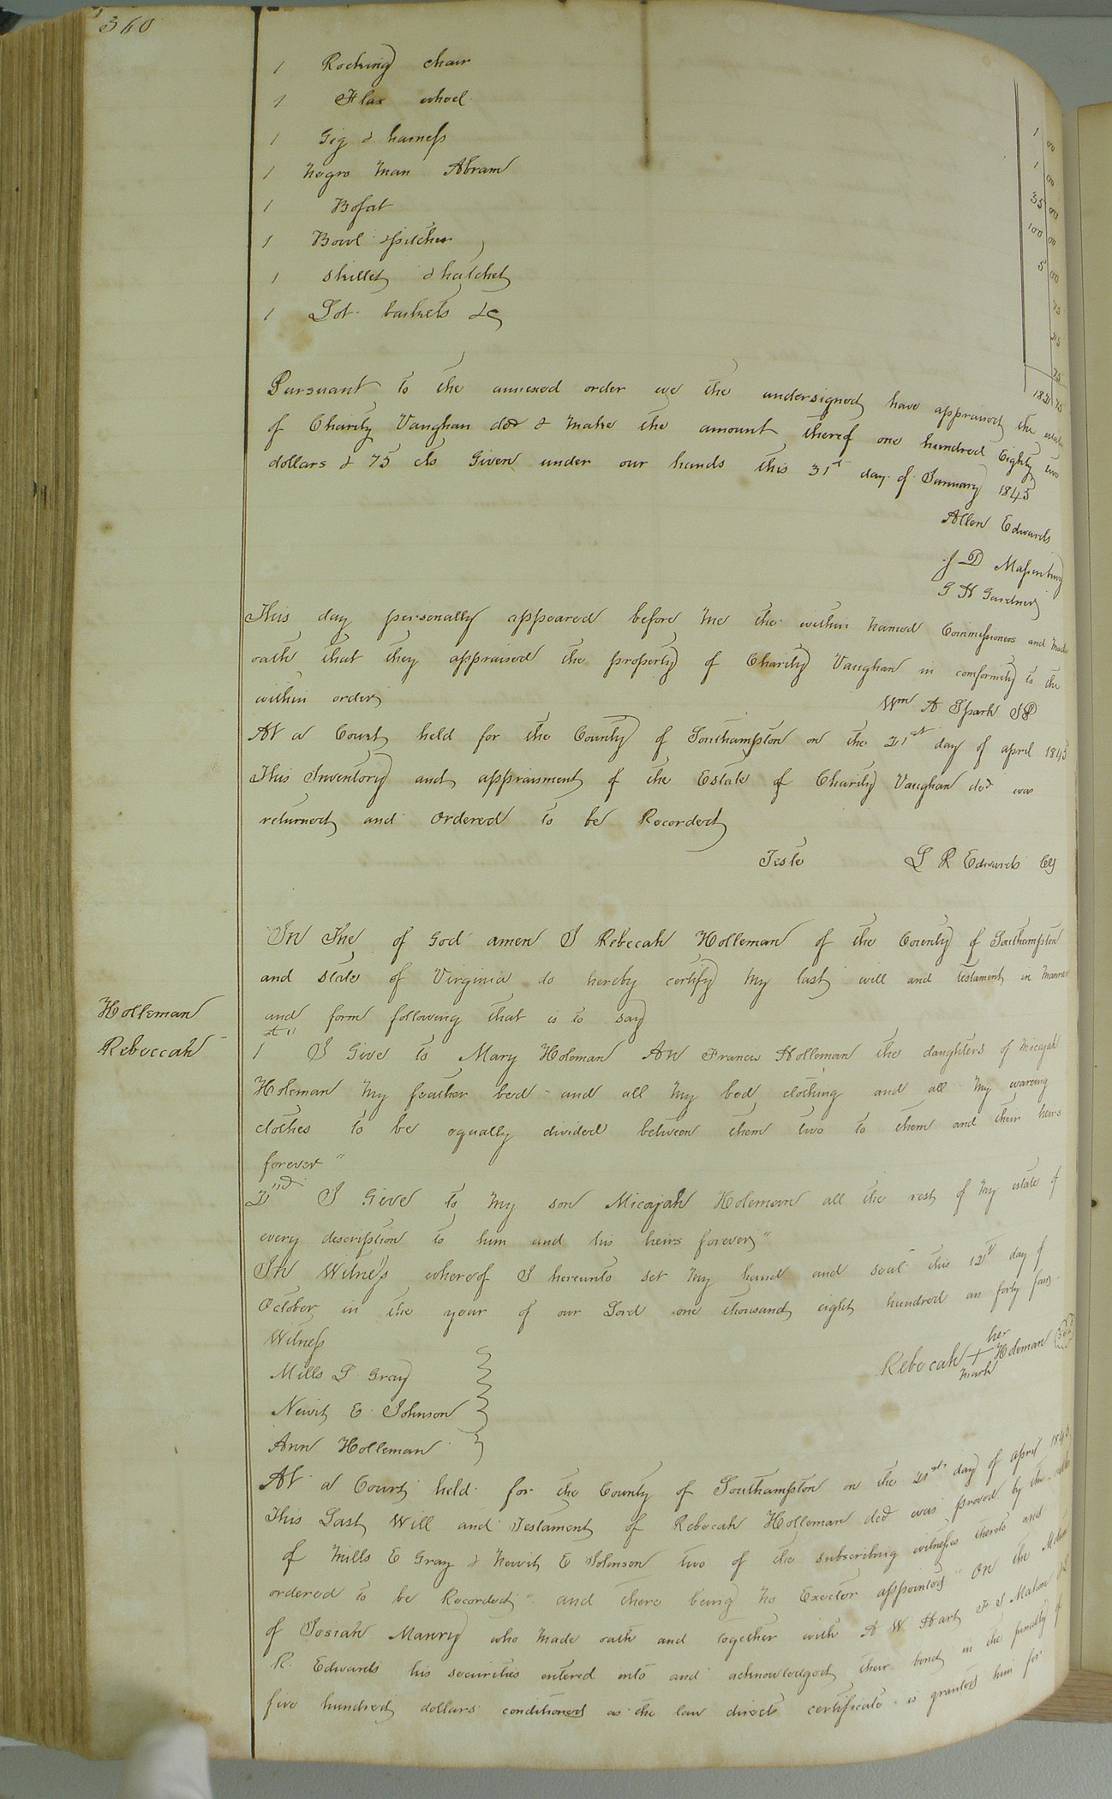 360
1 Rocking chair 1 00
1 Flax wheel 1 00
1 Gig & harness 35 00
1 Negro man Abram 100 00
1 Bofat 5 00
1 Bowl & pitcher 75
1 skillet & hatchet
1 Lot baskets &c 25
182 75
Pursuant to the annexed order we the undersigned have appraised the estate
of Charity Vaughan decd & make the amount thereof one hundred Eighty two
dollars & 75 cts Given under our hands this 31st day of January 1845
Allen Edwards
J D Massenburg
G H Gardner
This day personally appeared before me the within named Commissioners and made
oath that they appraised the property of Charity Vaughan in conformity to the
within order Wm A Spark JP
At a Court held for the County of Southampton on the 21st day of april 1845
This Inventory and appraisment of the Estate of Charity Vaughan decd was
returned and ordered to be Recorded
Teste L R Edwards Clk
In The of God amen I Rebecah Holleman of the County of Southampton
and state of Virginia do hereby certify my last will and testament in manner
Holleman
Rebeccah
and form following that is to say
1st I Give to Mary Holeman An Frances Holleman the daughters of Micajah
Holeman my feather bed and all my bed clothing and all my waring
clothes to be equally divided between them two to them and their heirs
forever "
2nd I Give to my son Micajah Holeman all the rest of my estate of
every description to him and his heirs forever "
In Witness whereof I hereunto set my hand and seal this 12th day of
October in the year of our Lord one thousand eight hundred an forty four
Witness
Rebecah her + mark Holeman
Mills E Gray
Newit E Johnson
Ann Holleman
At a Court held for the County of Southampton on the 21st day of april 1845
This Last Will and Testament of Rebecah Holleman decd was proved by the
of Mills E Gray & Newit E Johnson two of the subscribing witnesses thereto and
ordered to be Recorded " and there being no Exector appointed " On the Motion
of Josiah Manry who made oath and together with A W Hart
R. Edwards his securities entered into and acknowledged their bond in the penalty of
five hundred dollars conditioned as the law directs certificate is granted him for